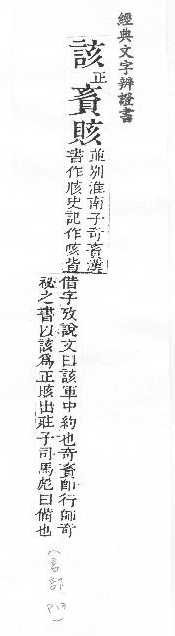 經典文字辨證書
該正賌賅並別淮南子奇賌漢
書作胲史記作咳皆
借字攷說文曰該軍中約也奇賌卽行師奇
祕之書以該爲正賅出莊子司馬彪曰備也
(言部 P13)